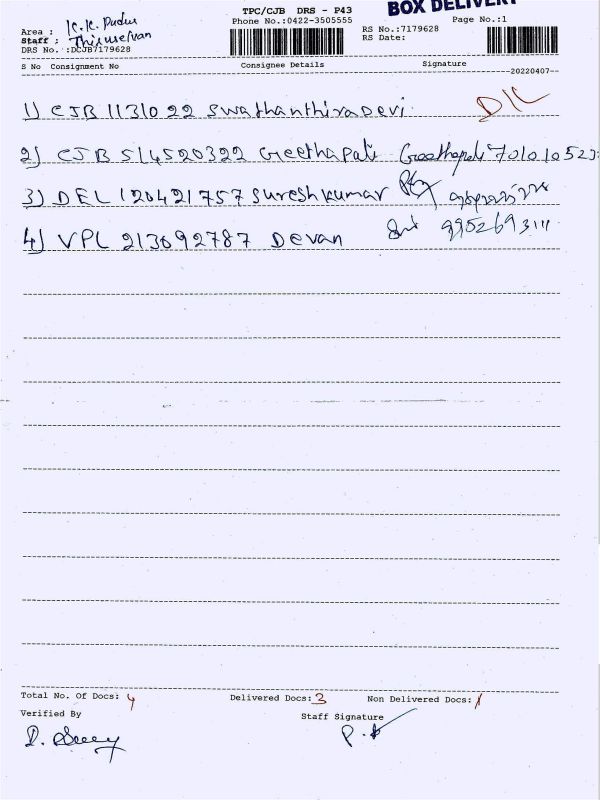 BOX DELIVERY
TPC/CJB DRS - P43
Phone No.:0422-3505555
Page No.:1
Area : K.K. Pudur
Staff : Thiruselvan
DRS No. :DCJB7179628
RS No.:7179628
RS Date:
S No Consignment No Consignee Details Signature
20220407
1) CJB 1131022 Swathanthira Devi D/L
2) CJB 514520322 Geethapali 701010523
3) DEL 120421757 Sureshkumar
4) VPL 213692787 Devan 9952693111
Total No. Of Docs: 4 Delivered Docs: 3 Non Delivered Docs: 1
Verified By Staff Signature